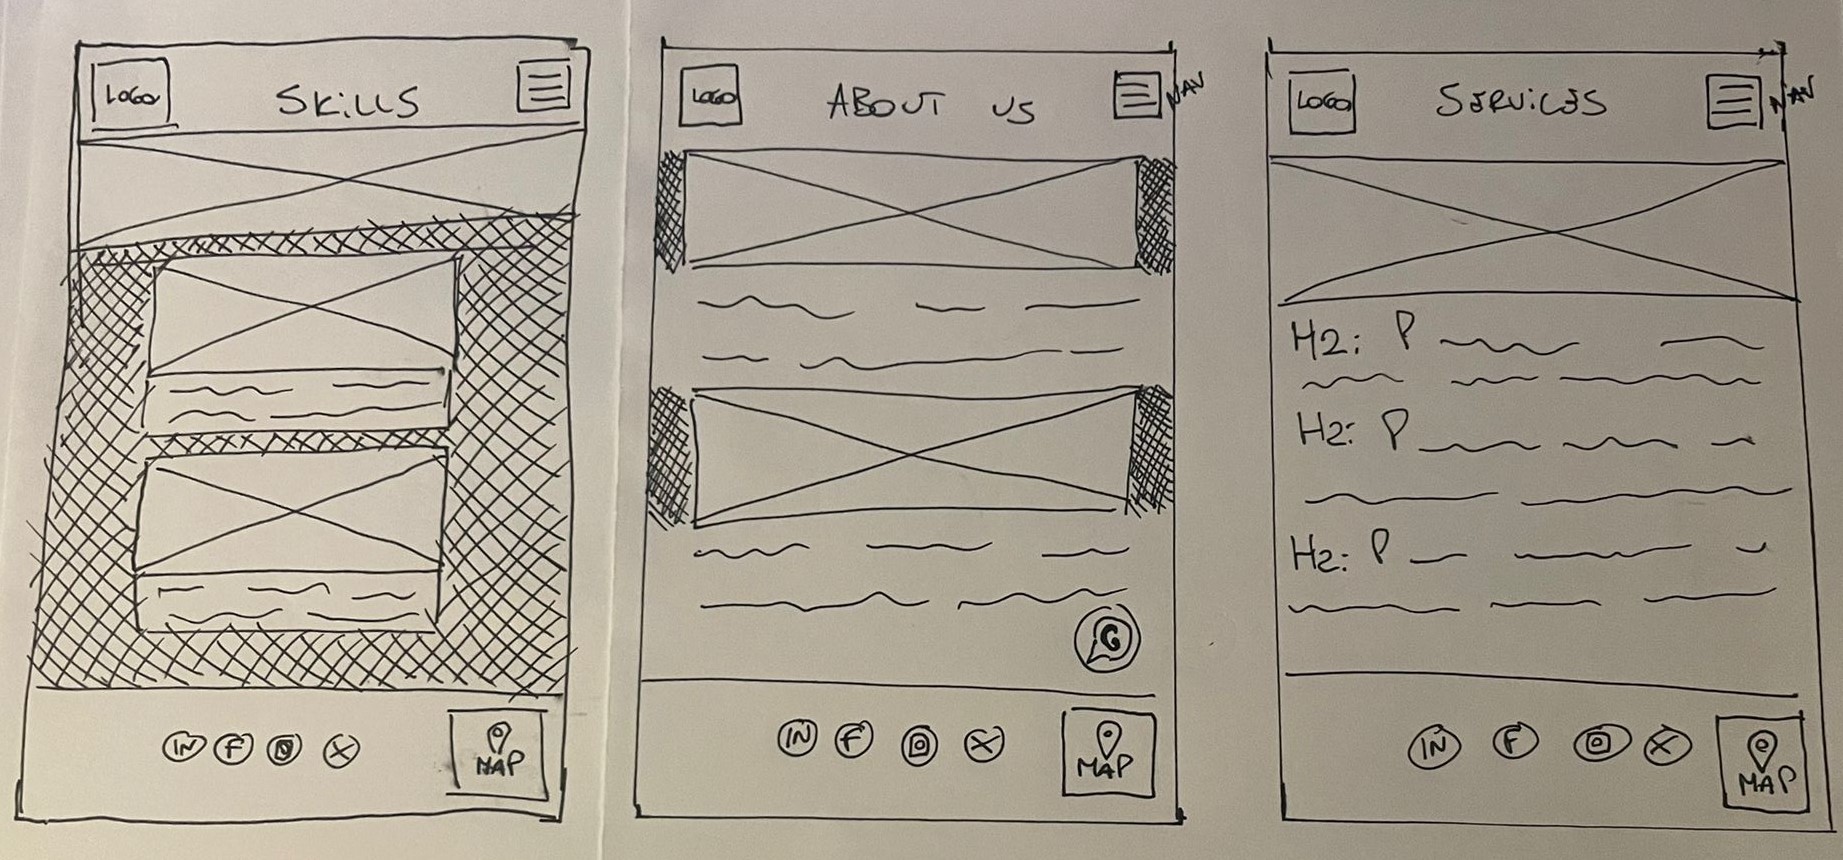 LOGO SKiLLS
IN F X
MAP
LOGO ABOUT US NAV
IN F X
MAP
LOGO SERViCES NAV
H2: P
H2: P
H2: P
IN F X
MAP